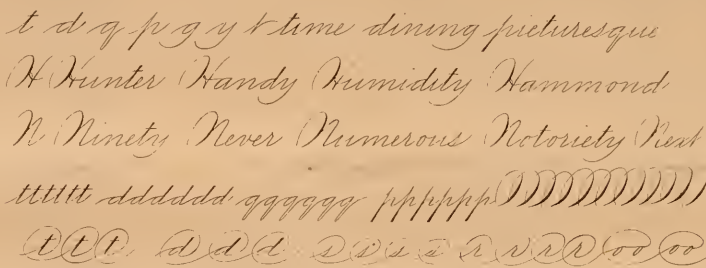 t d q p g y t time dining picturesque
H Hunter Handy Humidity Hammond
N Ninety Never Numerous Notoriety Next
tttttt dddddd qqqqqq pppppp
t t t d d d s s s s r r r r oo oo